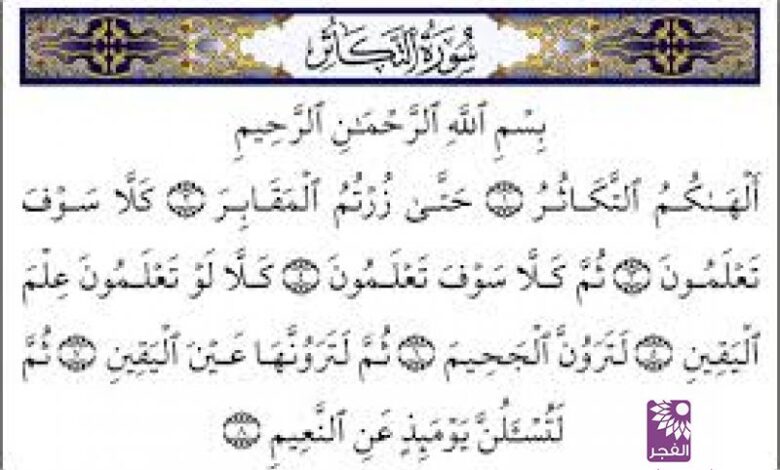 سُورَةُ التَّكَاثُرِ
بِسْمِ ٱللَّهِ ٱلرَّحْمَـٰنِ ٱلرَّحِيمِ
أَلْهَىٰكُمُ ٱلتَّكَاثُرُ ١ حَتَّىٰ زُرْتُمُ ٱلْمَقَابِرَ ٢ كَلَّا سَوْفَ
تَعْلَمُونَ ٣ ثُمَّ كَلَّا سَوْفَ تَعْلَمُونَ ٤ كَلَّا لَوْ تَعْلَمُونَ عِلْمَ
ٱلْيَقِينِ ٥ لَتَرَوُنَّ ٱلْجَحِيمَ ٦ ثُمَّ لَتَرَوُنَّهَا عَيْنَ ٱلْيَقِينِ ٧ ثُمَّ
لَتُسْـَٔلُنَّ يَوْمَئِذٍ عَنِ ٱلنَّعِيمِ ٨
الفجر